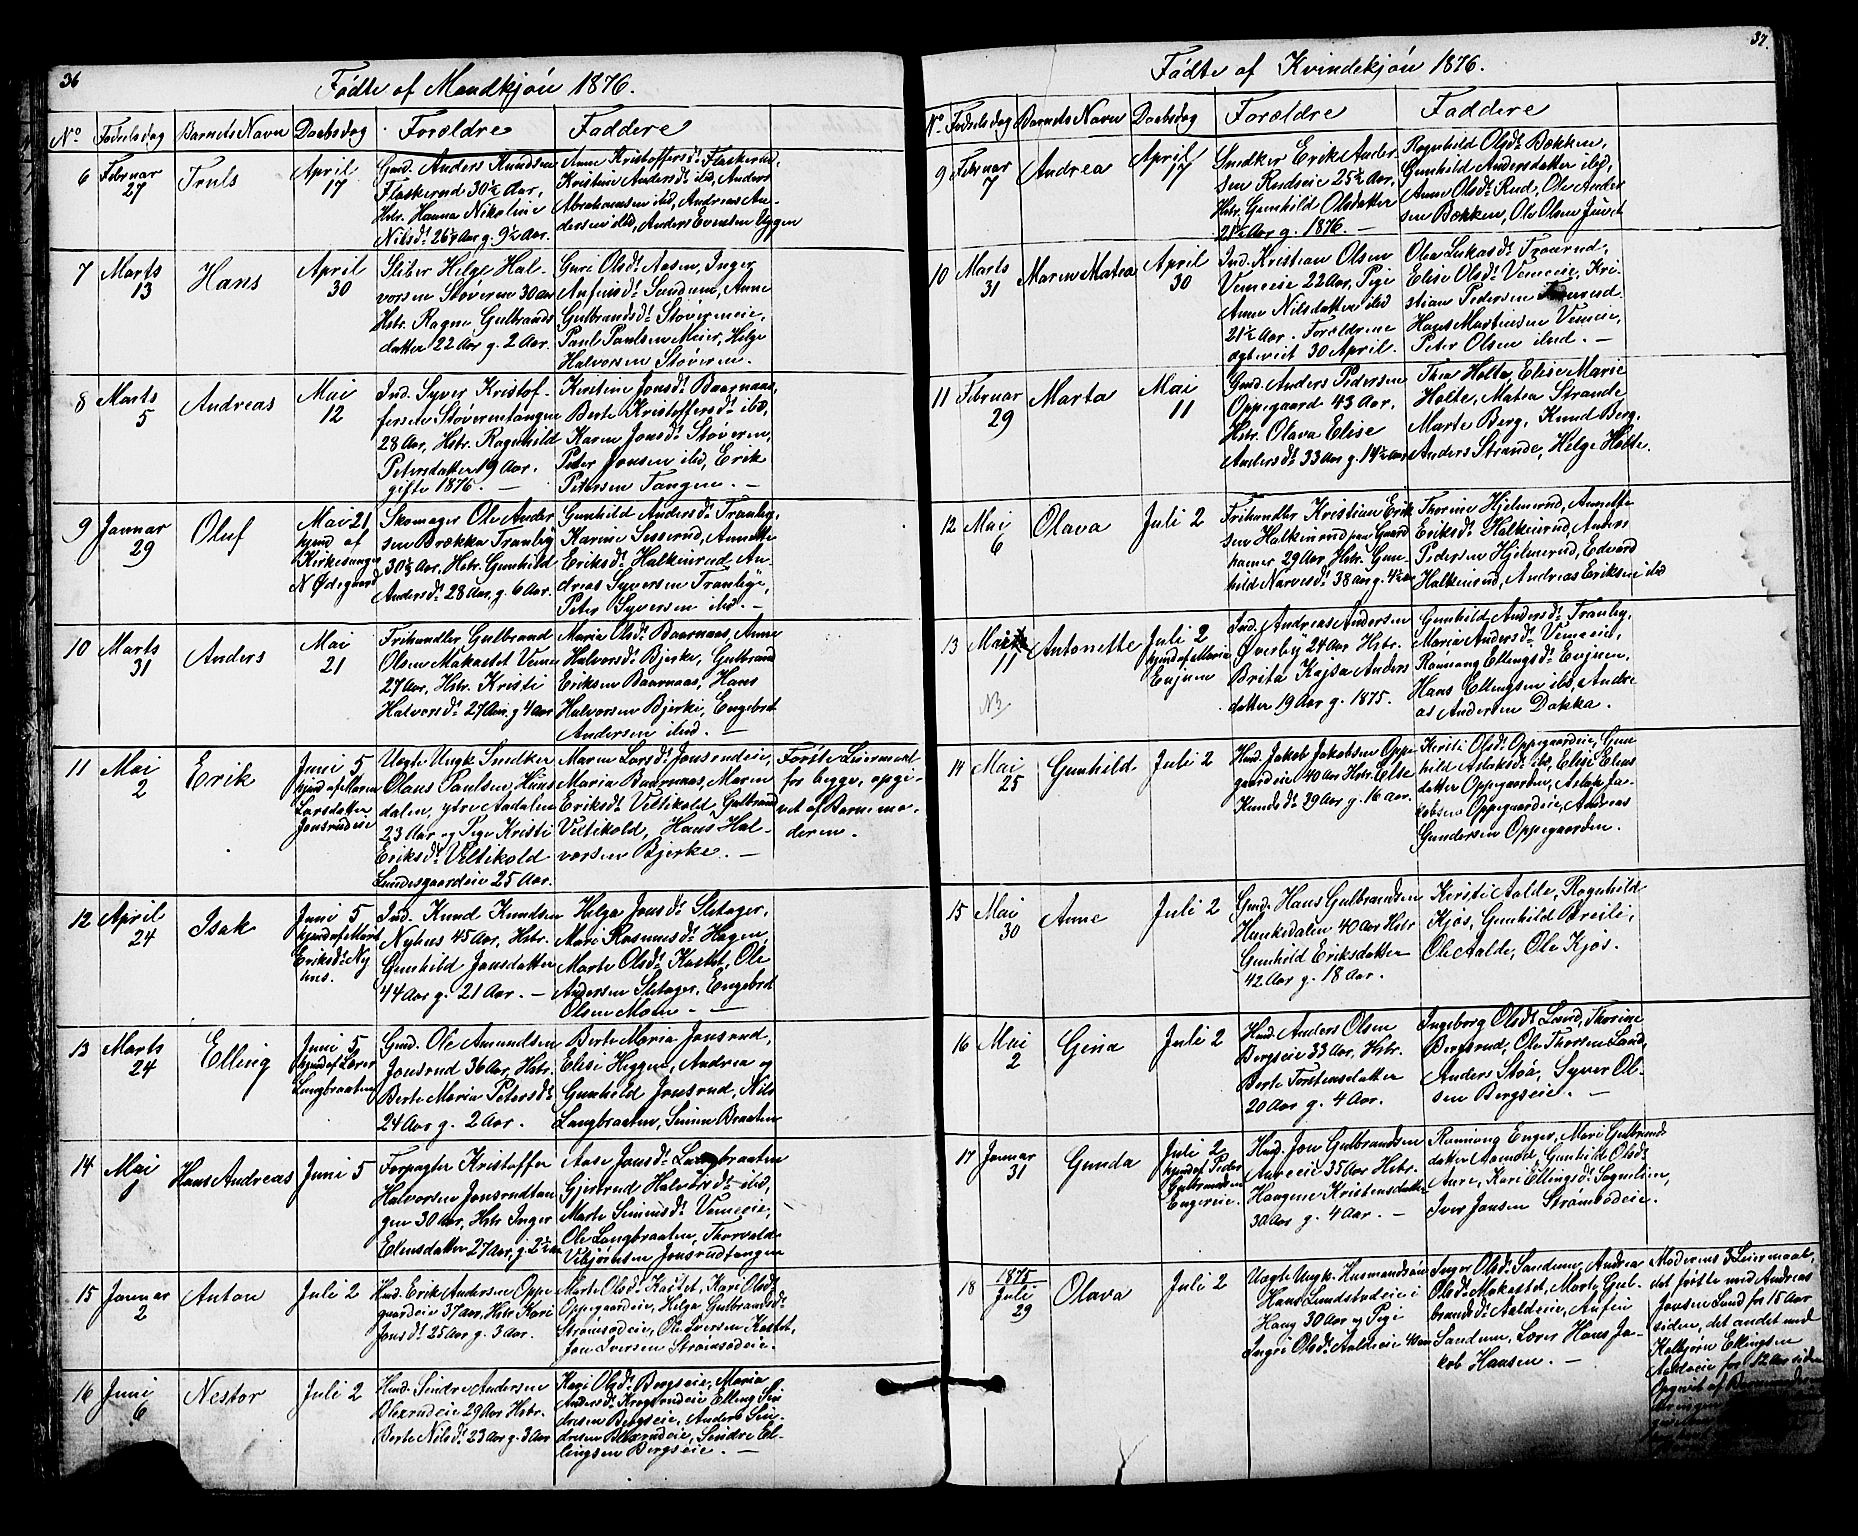 36
Fødte af Mandkjøn 1876.
No Fødselsdag Barnets Navn Daabsdag Forældre Faddere
6 Februar 27 Truls April 17
Gmd. Anders Knudsen
Flaskerud 30½ Aar,
Hstr. Hanna Nikoline
Nilsdr 26½ Aar g. 9½ Aar.
Anne Kristoffersdr Flaskerud,
Kristine Andersdr ibid, Anders
Abrahamsen ibid, Andreas An-
dersen ibid, Anders Evensen Iggen
7 Marts 13 Hans April 30
Sliber Helge Hal-
vorsen Støveren 30 Aar
Hstr. Ragne Gulbrands
datter 22 Aar g. 2 Aar.
Guri Olsdr Aasen, Inger
Anfinsdr Sandum, Anne
Gulbrandsdr Støverneie,
Paul Paulsen Meier, Helge
Halvorsen Støveren.
8 Marts 5 Andreas Mai 12
Ind. Syver Kristof-
fersen Støverentangen
28 Aar, Hstr. Ragnhild
Petersdatter 19 Aar.
gifte 1876. —
Kirstine Jonsdr Baarnaas,
Berte Kristoffersdr ibid,
Karen Jonsdr Støveren,
Peter Jonsen ibid, Erik
Petersen Tangen. —
9 Januar 29 Oluf
Mai 21
hjmd af
Kirkesanger
N Ødegaard
Skomager Ole Ander
sen Brækka Tranby
30½ Aar, Hstr. Gunhild
Andersdr 28 Aar, g. 6 Aar.
Gunhild Andersdr Tranby,
Karine Sisserud, Annette
Eriksdr Halkinrud, An-
drias Syversen Tranbye,
Peter Syversen ibid. —
10 Marts 31 Anders Mai 21
Frihandler Gulbrand
Olsen Makastet Veme
27 Aar, Hstr. Kristi
Halvorsdr 27 Aar, g 4 Aar
Maria Olsdr Baarnaas, Anne
Halvorsdr Bjerke, Gulbrand
Eriksen Baarnaas, Hans
Halvorsen Bjerke, Engebret
Andersen ibid. —
11 Mai 2 Erik
Juni 5
hjmd af Maren
Larsdatter
Jonsrudeie
Uægte Ungk. Snedker
Olaus Paulsen, Huns
dalen, ytre Aadalen
23 Aar og Pige Kristi
Eriksdr Veltikold
Lundesgaardeie 25 Aar.
Maren Larsdr Jonsrudeie,
Maria Baarnaas, Maren
Eriksdr Veltikold, Gulbrand
Veltikold, Hans Hal-
vorsen Bjerke. —
Første Leiermaal
for begge, opgi-
vet af Barnemo-
deren.
12 April 24 Isak
Juni 5
hjmd af Marit
Eriksdr Ny
hus.
Ind. Knud Knudsen
Nyhus 45 Aar, Hstr.
Gunhild Jonsdatter
44 Aar g. 21 Aar. —
Helga Jonsdr Sletager,
Mari Rasmusdr Hagen,
Marte Olsdr Kastet, Ole
Andersen Sletager, Engebret
Olsen Moen. —
13 Marts 24 Elling
Juni 5
hjmd af Lærer
Langbraaten
Gmd. Ole Amundsen
Jonsrud 36 Aar, Hstr.
Berte Maria Petersdr
24 Aar g. 2 Aar.
Berte Maria Jonsrud,
Elisi Heggen, Andrea og
Gunhild Jonsrud, Nils
Langbraaten, Simen Braaten
14 Mai 1 Hans Andreas Juni 5
Forpagter Kristoffer
Halvorsen Jonsrudtan
gen 30 Aar, Hstr Inger
Edensdatter 27 Aar, g. 2½ Aar
Aase Jonsdr Langbraaten
Gjertrud Halvorsdr ibid,
Marte Simensdr Vemeeie,
Ole Langbraaten, Thorvald
Vebjørnsen Jonsrudtangen
15 Januar 2 Anton Juli 2
Hmd. Erik Andersen Oppe
gaardeie 37 Aar, Hstr Kari
Jonsdr 25 Aar g. 3 Aar.
Marte Olsdr Kastet, Kari Olsdr
Oppegaardeie, Helga Gulbrandsdr
Strømsødeie, Ole Iversen Kastet,
Jon Iversen Strømsødeie.
16 Juni 6 Nestor Juli 2
Hmd. Sindre Andersen
Blexrudeie 29 Aar Hstr.
Berte Nilsdr 23 Aar g. 3 Aar
Kari Olsdr Bergseie, Maria
Andersdr Kragsrudeie, Elling Sin
dresen Bergseie, Anders Sin-
dresen Blexrudeie, Sindre El-
lingsen Bergseie. —
37.
Fødte af Kvindekjøn 1876.
No Fødselsdag Barnets Navn Daabsdag Forældre Faddere
9 Februar 7 Andrea April 17
Snedker Erik Ander
sen Rudseie 25½ Aar,
Hstr. Gunhild Olsdatter
21½ Aar g. 1876. —
Ragnhild Olsdr Bækken,
Gunhild Andersdatter ibid,
Anne Olsdr Rud, Ole Ander
sen Bækken, Ole Olsen Juvet
10 Marts 31 Maren Matea April 30
Ind. Kristian Olsen
Vemeeie 22 Aar, Pige
Anne Nilsdatter ibid
21½ Aar. Forældrene
ægteviet 30 April.
Olea Lukasdr Traarud,
Elise Olsdr Vemeeie, Kri
stian Pedersen Traarud
Hans Martinsen Vemeeie,
Peter Olsen ibid. —
11 Februar 29 Marta Mai 11
Gmd. Anders Pedersen
Oppegaard 43 Aar,
Hstr. Olava Elise
Andersdr 33 Aar g. 14½ Aar
Thea Holte, Elise Marie
Holte, Matea Strande
Marte Berg, Knud Berg,
Anders Strande, Helge Holte.
12 Mai 6 Olava Juli 2
Frihandler Kristian Erik
sen Halkinrud paa Gaard
hamer 29 Aar, Hstr. Gun
hild Narvesdr 38 Aar g. 4½ Aar
Thorine Hjelmerud, Annette
Eriksdr Halkinrud, Anders
Pedersen Hjelmerud, Edvard
Halkinrud, Andreas Eriksen ibid
13 Mai 11 Antonette
NB
Juli 2
hjmd af Maria
Enjuen
Ind. Andreas Andersen
Øverby 24 Aar Hstr.
Brita Kajsa Anders
datter 19 Aar g. 1875.
Gunhild Andersdr Tranby,
Maria Andersdr Vemeeie,
Rannaug Ellingsdr Enjuen,
Hans Ellingsen ibid, Andre
as Andersen Dokka.
14 Mai 25 Gunhild Juli 2
Hmd. Jakob Jakobsen Oppe
gaardeie 40 Aar Hstr. Else
Knudsdr 29 Aar g. 16 Aar.
Kersti Olsdr Oppegaardeie, Gun
hild Aslaksdr ibd, Elise Eliens
datter Oppegaarden, Aslak Ja
kobsen Oppegaardeie, Andreas
Gundersen Oppegaarden.
15 Mai 30 Anne Juli 2
Gmd. Hans Gulbrandsen
Hunkedalen 40 Aar Hstr
Gunhild Eriksdatter
42 Aar g. 18 Aar.
Kersti Aalde, Ragnhild
Kjøs, Gunhild Breili,
Ole Aalde, Ole Kjøs.
16 Mai 2 Gina Juli 2
Hmd. Anders Olsen
Bergseie 33 Aar, Hstr.
Berte Torstensdatter
20 Aar g. 4 Aar.
Ingeborg Olsdr Lund, Thorine
Bergsrud, Ole Thorsen Land,
Anders Stöa, Syver Ol-
sen Bergseie. —
17 Januar 31 Gunda
Juli 2
hjmd af Peder
Gulbrandsen
Engereie.
Hmd. Jon Gulbrandsen
Aureeie 35 Aar Hstr.
Haagene Kristensdatter
30 Aar g. 4 Aar. —
Rannaug Enger, Mari Gulbrands
datter Aamod, Gunhild Olsdr
Aure, Kari Ellingsdr Sognlien,
Iver Jonsen Strømsødeie.
18 1875 Juli 29 Olava Juli 2
Uægte Ungk. Husmandssøn
Hans Lundstadeie i
Haug 30 Aar og Pige
Ingri Olsdr Aaldieie 40 Aar
Inger Olsdr Sandum, Andrea
Olsdr Makastet, Marte Gul-
brandsdr Aaldeie, Anfin
Sandum, Lærer Hans Ja-
kob Hansen. —
Moderens 3 Leiermaal,
det første med Andreas
Jonsen Lund for 15 Aar
siden, det andet med
Kolbjørn Ellingsen
Aaldeie for 12 Aar siden
Opgivet af